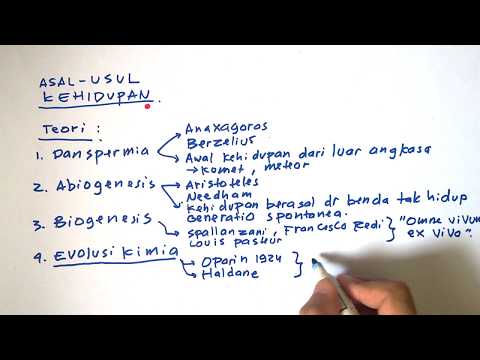 ASAL-USUL
KEHIDUPAN.
Teori :
1. Danspermia
Anaxagoros
Berzelius
Awal kehidupan dari luar angkasa
→ komet, meteor
2. Abiogenesis
Aristoteles
Needham
Kehidupan berasal dr benda tak hidup
Generatio spontanea.
3. Biogenesis
Spallanzani, Francesco Redi
Louis pasteur
"Omne vivum
ex vivo".
4. EVOLUSI KIMIA
Oparin 1924
Haldane